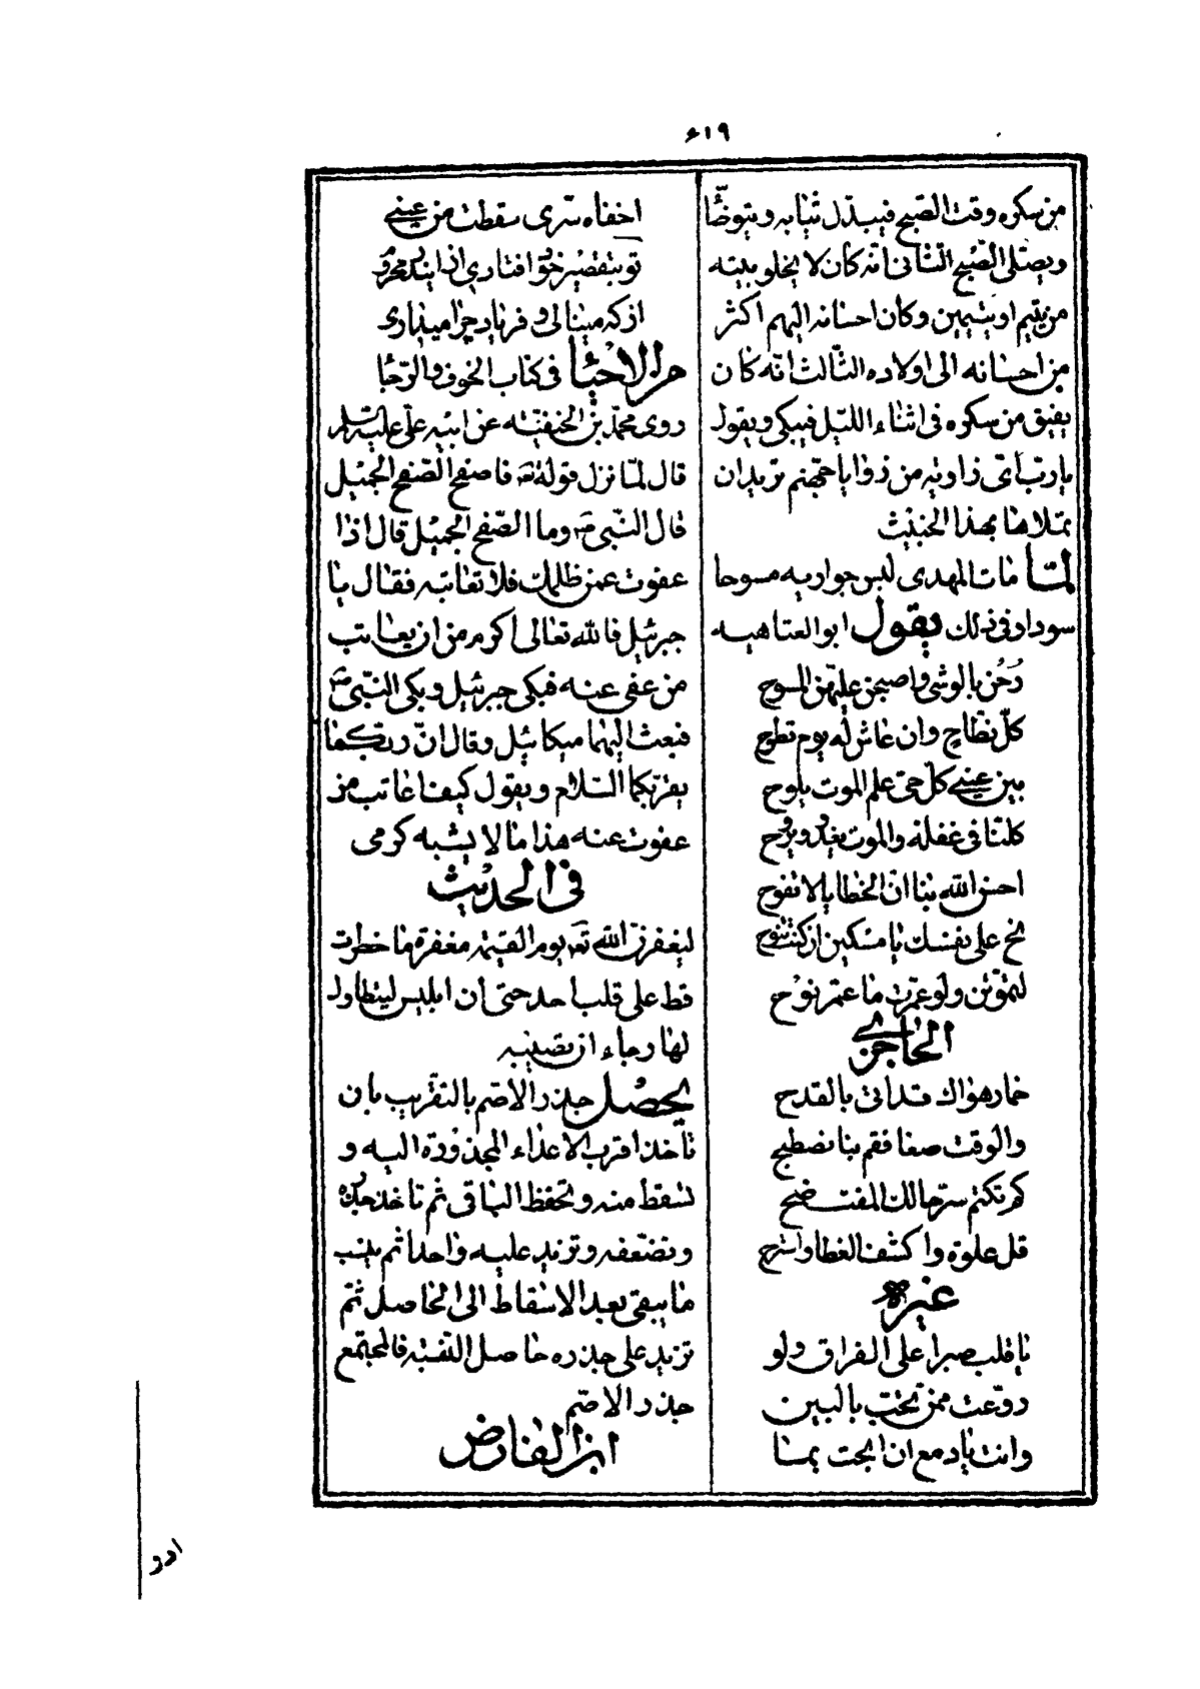 ۶۱۹
من سكره وقت الصبح فيبدل ثيابه ويتوضّأ
ويصلى الصّبح الثانى انّه كان لا يخلو بيته
من يتيم او يتيمين وكان احسانه اليهم اكثر
من احسانه الى اولاده الثّالث انّه كان
يفيق من سكره فى اثناء الليل فيبكى ويقول
يا ربّ اىّ زاوية من زوايا جهنم تريد ان
تملاها بهذا الخبيث
لمّا مات المهدى لبس جواريه مسوحا
سودا وفى ذلك يقول ابو العتاهيه
رُحْن بالوشى واصبحن عليهن المسوح
كلّ نطّاح وان عاش له يوم نطوح
بين عينى كلّ حى علم الموت يلوح
كلنا فى غفلة والموت يغدو ويروح
احسن الله بنا انّ الخطايا لا تفوح
نح على نفسك يا مسكين ان كنت تنوح
لتموتنّ ولو عمّرت ما عمّر نوح
الحاجرى
خمار هواك قد اتى بالقدح
والوقت صفا فقم بنا نصطبح
كم تكتم سرّ حالك المفتضح
قل علوة واكشف الغطا واسترح
غيره
يا قلب صبرا على الفراق ولو
روّعت ممن تحبّ بالبين
وانت يا دمع ان ابحت بما
اخفاه سرى سقطت من عينى
تو بتقصير خود افتادى از اين در محروم
از كه مينالى و فرياد چرا ميدارى
من الاحيا فى كتاب الخوف والرّجا
روى محمّد بن الحنفيّه عن ابيه على عليه السلام
قال لمّا نزل قوله تع فاصفح الصّفح الجميل
قال النّبى ص وما الصّفح الجميل قال اذا
عفوت عمن ظلمك فلا تعاتبه فقال يا
جبرئيل فالله تعالى اكرم من ان يعاتب
من عفى عنه فبكى جبرئيل وبكى النّبى ص
فبعث اليهما ميكائيل وقال انّ ربّكما
يقرئكما السّلام ويقول كيف اعاتب من
عفوت عنه هذا ما لا يشبه كرمى
فى الحديث
ليغفرنّ الله تع يوم القيمة مغفرة ما خطرت
قط على قلب احد حتى ان ابليس ليتطاول
لها رجاء ان تصيبه
يحصل جذر الاصم بالتقريب بان
تاخذ اقرب الاعداء المجذورة اليه و
تسقط منه وتحفظ الباقى ثم تاخذ جذره
وتضعفه وتزيد عليه واحدا ثم ينسب
ما يبقى بعد الاسقاط الى الحاصل ثمّ
تزيد على جذره حاصل النّسبة فالمجتمع
جذر الاصم
ابن الفارض
ادر